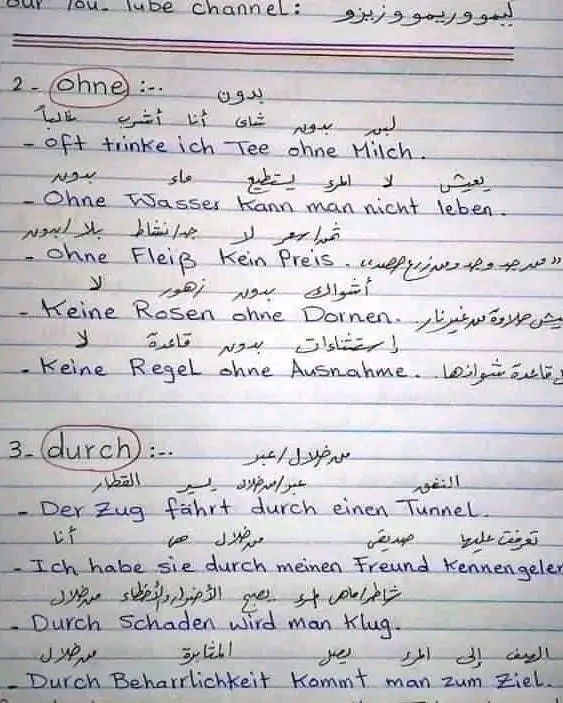 our You Tube channel: ليمو وريمو و زيزو
2- ohne :-.. بدون
غالباً أشرب أنا شاى بدون لبن
- oft trinke ich Tee ohne Milch.
بدون ماء يستطيع المرء لا يعيش
- Ohne Wasser kann man nicht leben.
بلا/بدون جد/نشاط لا سعر/ثمن
- Ohne Fleiß kein Preis. "من جد وجد ومن زرع حصد"
لا زهور بدون أشواك
- Keine Rosen ohne Dornen. حلاوة من غير نار
لا قاعدة بدون إستثناءات
- Keine Regel ohne Ausnahme. قاعدة شواذها
3- durch :-.. من خلال/عبر
القطار يسير عبر/من خلال النفق
- Der Zug fährt durch einen Tunnel.
أنا هى من خلال صديقى تعرفت عليها
- Ich habe sie durch meinen Freund kennengeler
من خلال الأضرار والأخطاء يصبح المرء شاطر/ماهر
- Durch Schaden wird man klug.
من خلال المثابرة يصل المرء إلى الهدف
- Durch Beharrlichkeit kommt man zum Ziel.